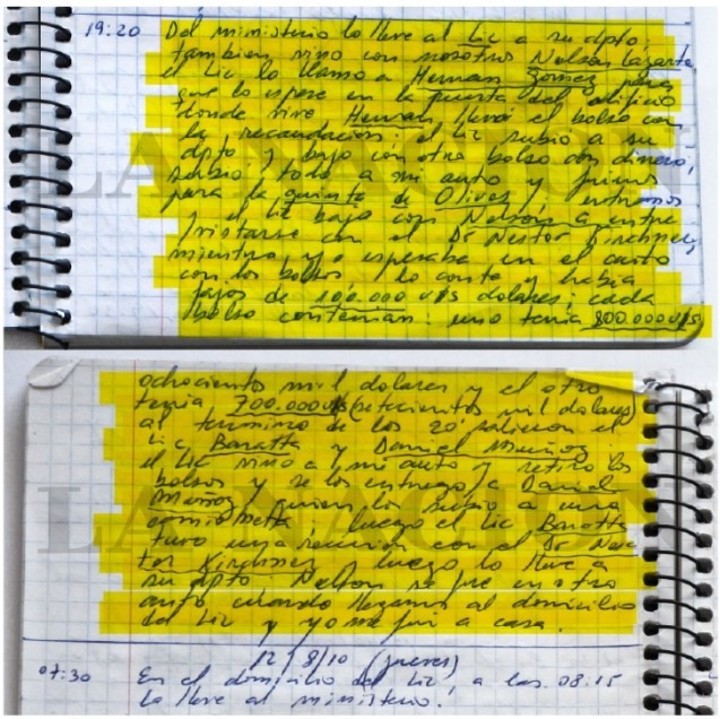 19:20 Del mimisterio lo lleve al Lic a su dpto.
tambien vino con nosotros Nelson Lazarte
el Lic lo llamo a Hernan Gomez para
que lo espere en la puerta del edificio
donde vive, Hernan llevó el bolso con
la recaudacion; el Lic subió a su
dpto y bajo con otro bolso con dinero,
subio todo a mi auto y fuimos
para la quinta de Olivos; entramos
y el Lic bajo con Nelson a entre
vistarse con el Dr Nestor Kirchner,
mientras yo esperaba en el auto
con los bolsos, lo conte y habia
fajos de 100.000 u$s dolares; cada
bolso contenian: uno tenia 800.000 u$s
ochociento mil dolares y el otro
tenia 700.000 u$s (setecientos mil dolares)
al termino de los 20' salieron el
Lic Baratta y Daniel Muñoz
el Lic vino a mi auto y retiro los
bolsos y se los entrego a Daniel
Muñoz, quien lo subio a una
camioneta; luego el Lic Baratta
tuvo una reunion con el Dr Nes
tor Kirchner y luego lo lleve a
su dpto. Nelson se fue en otro
auto cuando llegamos al domicilio
del Lic y yo me fui a casa.
12/8/10 (jueves)
07:30 En el domicilio del Lic, a las 08:15
lo lleve al ministerio.
LA NACION
LA NACION